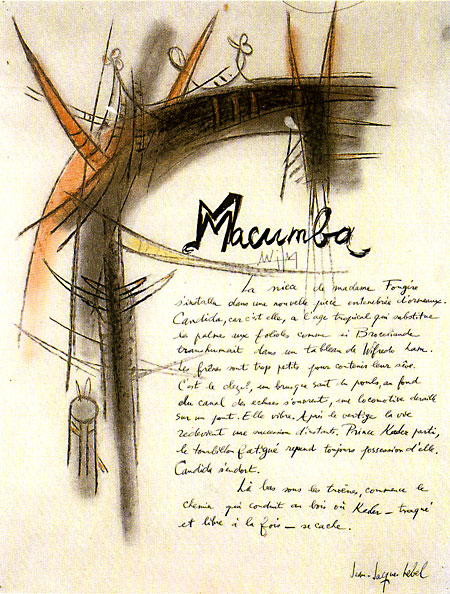 Macumba
La nièce de madame Fougère
s'installe dans une nouvelle pièce enténébrée d'ormeaux.
Candida, car c'est elle, a l'age tropical qui substitue
la palme aux folioles comme si Brocéliande
transhumait dans un tableau de Wifredo Lam.
Les frères sont trop petits pour contenir leur rêve.
C'est le dégel, un brusque saut du pouls, au fond
du canal des écluses s'ouvrent, une locomotive déraille
sur un pont. Elle vibre. Après le vertige la vie
redevient une succession d'instants. Prince Kader parti,
le tourbillon fatigué reprend toujours possession d'elle.
Candida s'endort.
Là bas sous les troènes, commence le
chemin qui conduit au bois où Kader – traqué
et libre à la fois – se cache.
Jean-Jacques Lebel